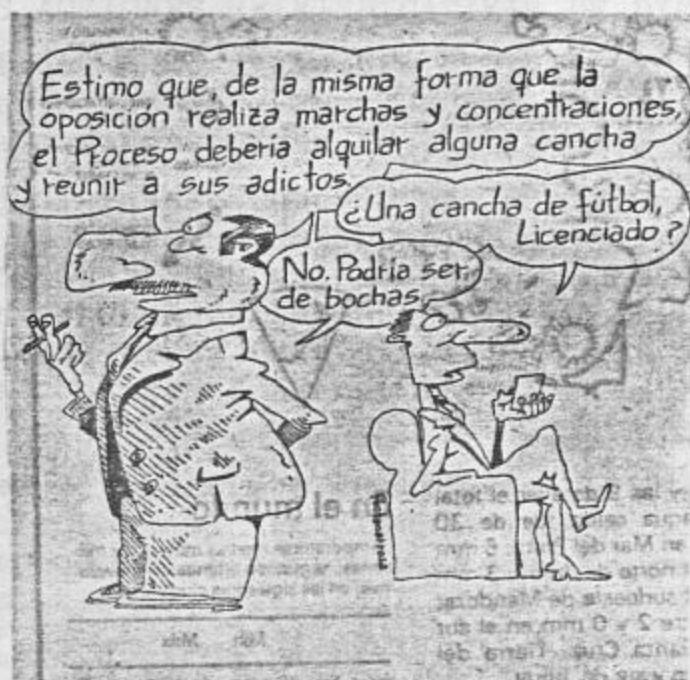 Estimo que, de la misma forma que la
oposición realiza marchas y concentraciones,
el Proceso debería alquilar alguna cancha
y reunir a sus adictos.
¿Una cancha de fútbol,
Licenciado?
No. Podría ser,
de bochas.